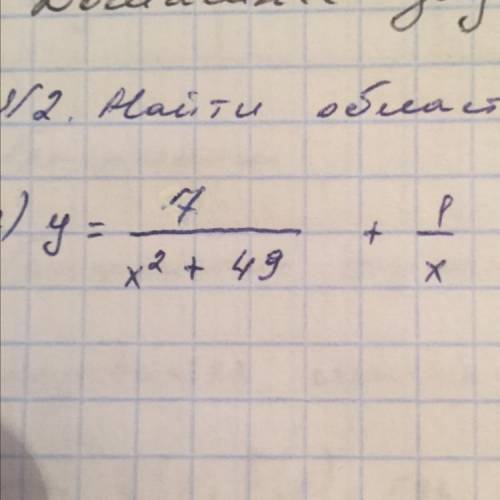 №2. Найти област
) y = 7 / (x² + 49) + 1 / x